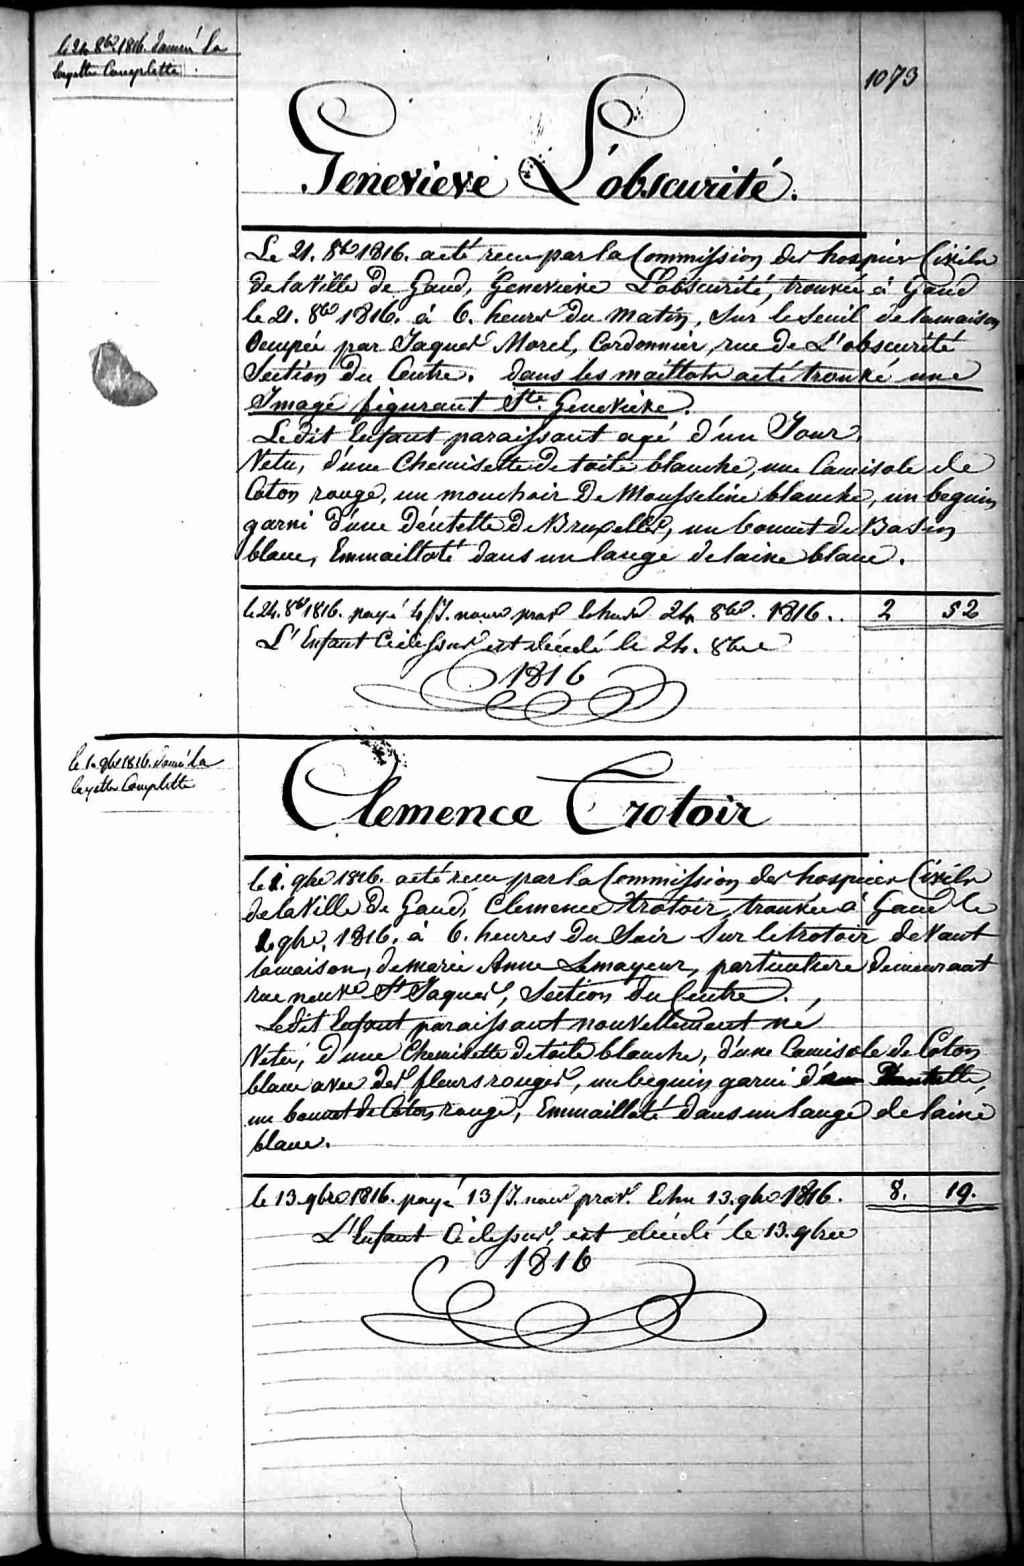 le 21 8bre 1816. donné la
layette Complette.
1073
Genevieve L'obscurité.
Le 21. 8bre 1816. a eté recu par la Commission des hospices Civils
de la Ville de Gand, Genevieve L'obscurité, trouvée à Gand
le 21. 8bre 1816. à 6. heures du matin, sur le seuil de la maison
Occupée par Jaques Morel, Cordonnier, rue de L'obscurité
Section du Centre. dans les maillots a eté trouvé une
Image figurant Ste. Genevieve.
Ledit Enfant paraissant agé d'un Jour.
Vetu, d'une Chemisette de toile blanche, une Camisole de
Coton rouge, un mouchoir De Mousseline blanche, un beguin
garni d'une déntelle de Bruxelles, un bonnet de Basin
blanc, Emmailloté dans un lange de laine blanc.
le 24. 8bre 1816. payé 4/J. nour prov echus 24 8bre. 1816.. 2 52
L'Enfant Cidessus est décédé le 24. 8bre
1816
le 1. 9bre 1816. donné la
layette Complette
Clemence Trotoir
le 1. 9bre 1816. a eté recu par la Commission des hospices Civils
de la Ville de Gand, Clemence Trotoir, trouvée à Gand le
1. 9bre. 1816. à 6. heures du Soir sur le trotoir devant
la maison, de marie Anne Lemayeur, particuliere demeurant
rue neuve St Jaques, Section du Centre.
Ledit Enfant paraissant nouvellement né
Vetu, d'une Chemisette de toile blanche, d'une Camisole de Coton
blanc avec des fleurs rouges, un beguin garni d' Dentelle,
un bonnet de Coton rouge, Emmailloté dans un lange de laine
blanc.
le 13. 9bre 1816. payé 13/J. nour prov. Echu 13. 9bre 1816. 8. 19.
L'Enfant Cidessus, est décédé le 13. 9bre
1816